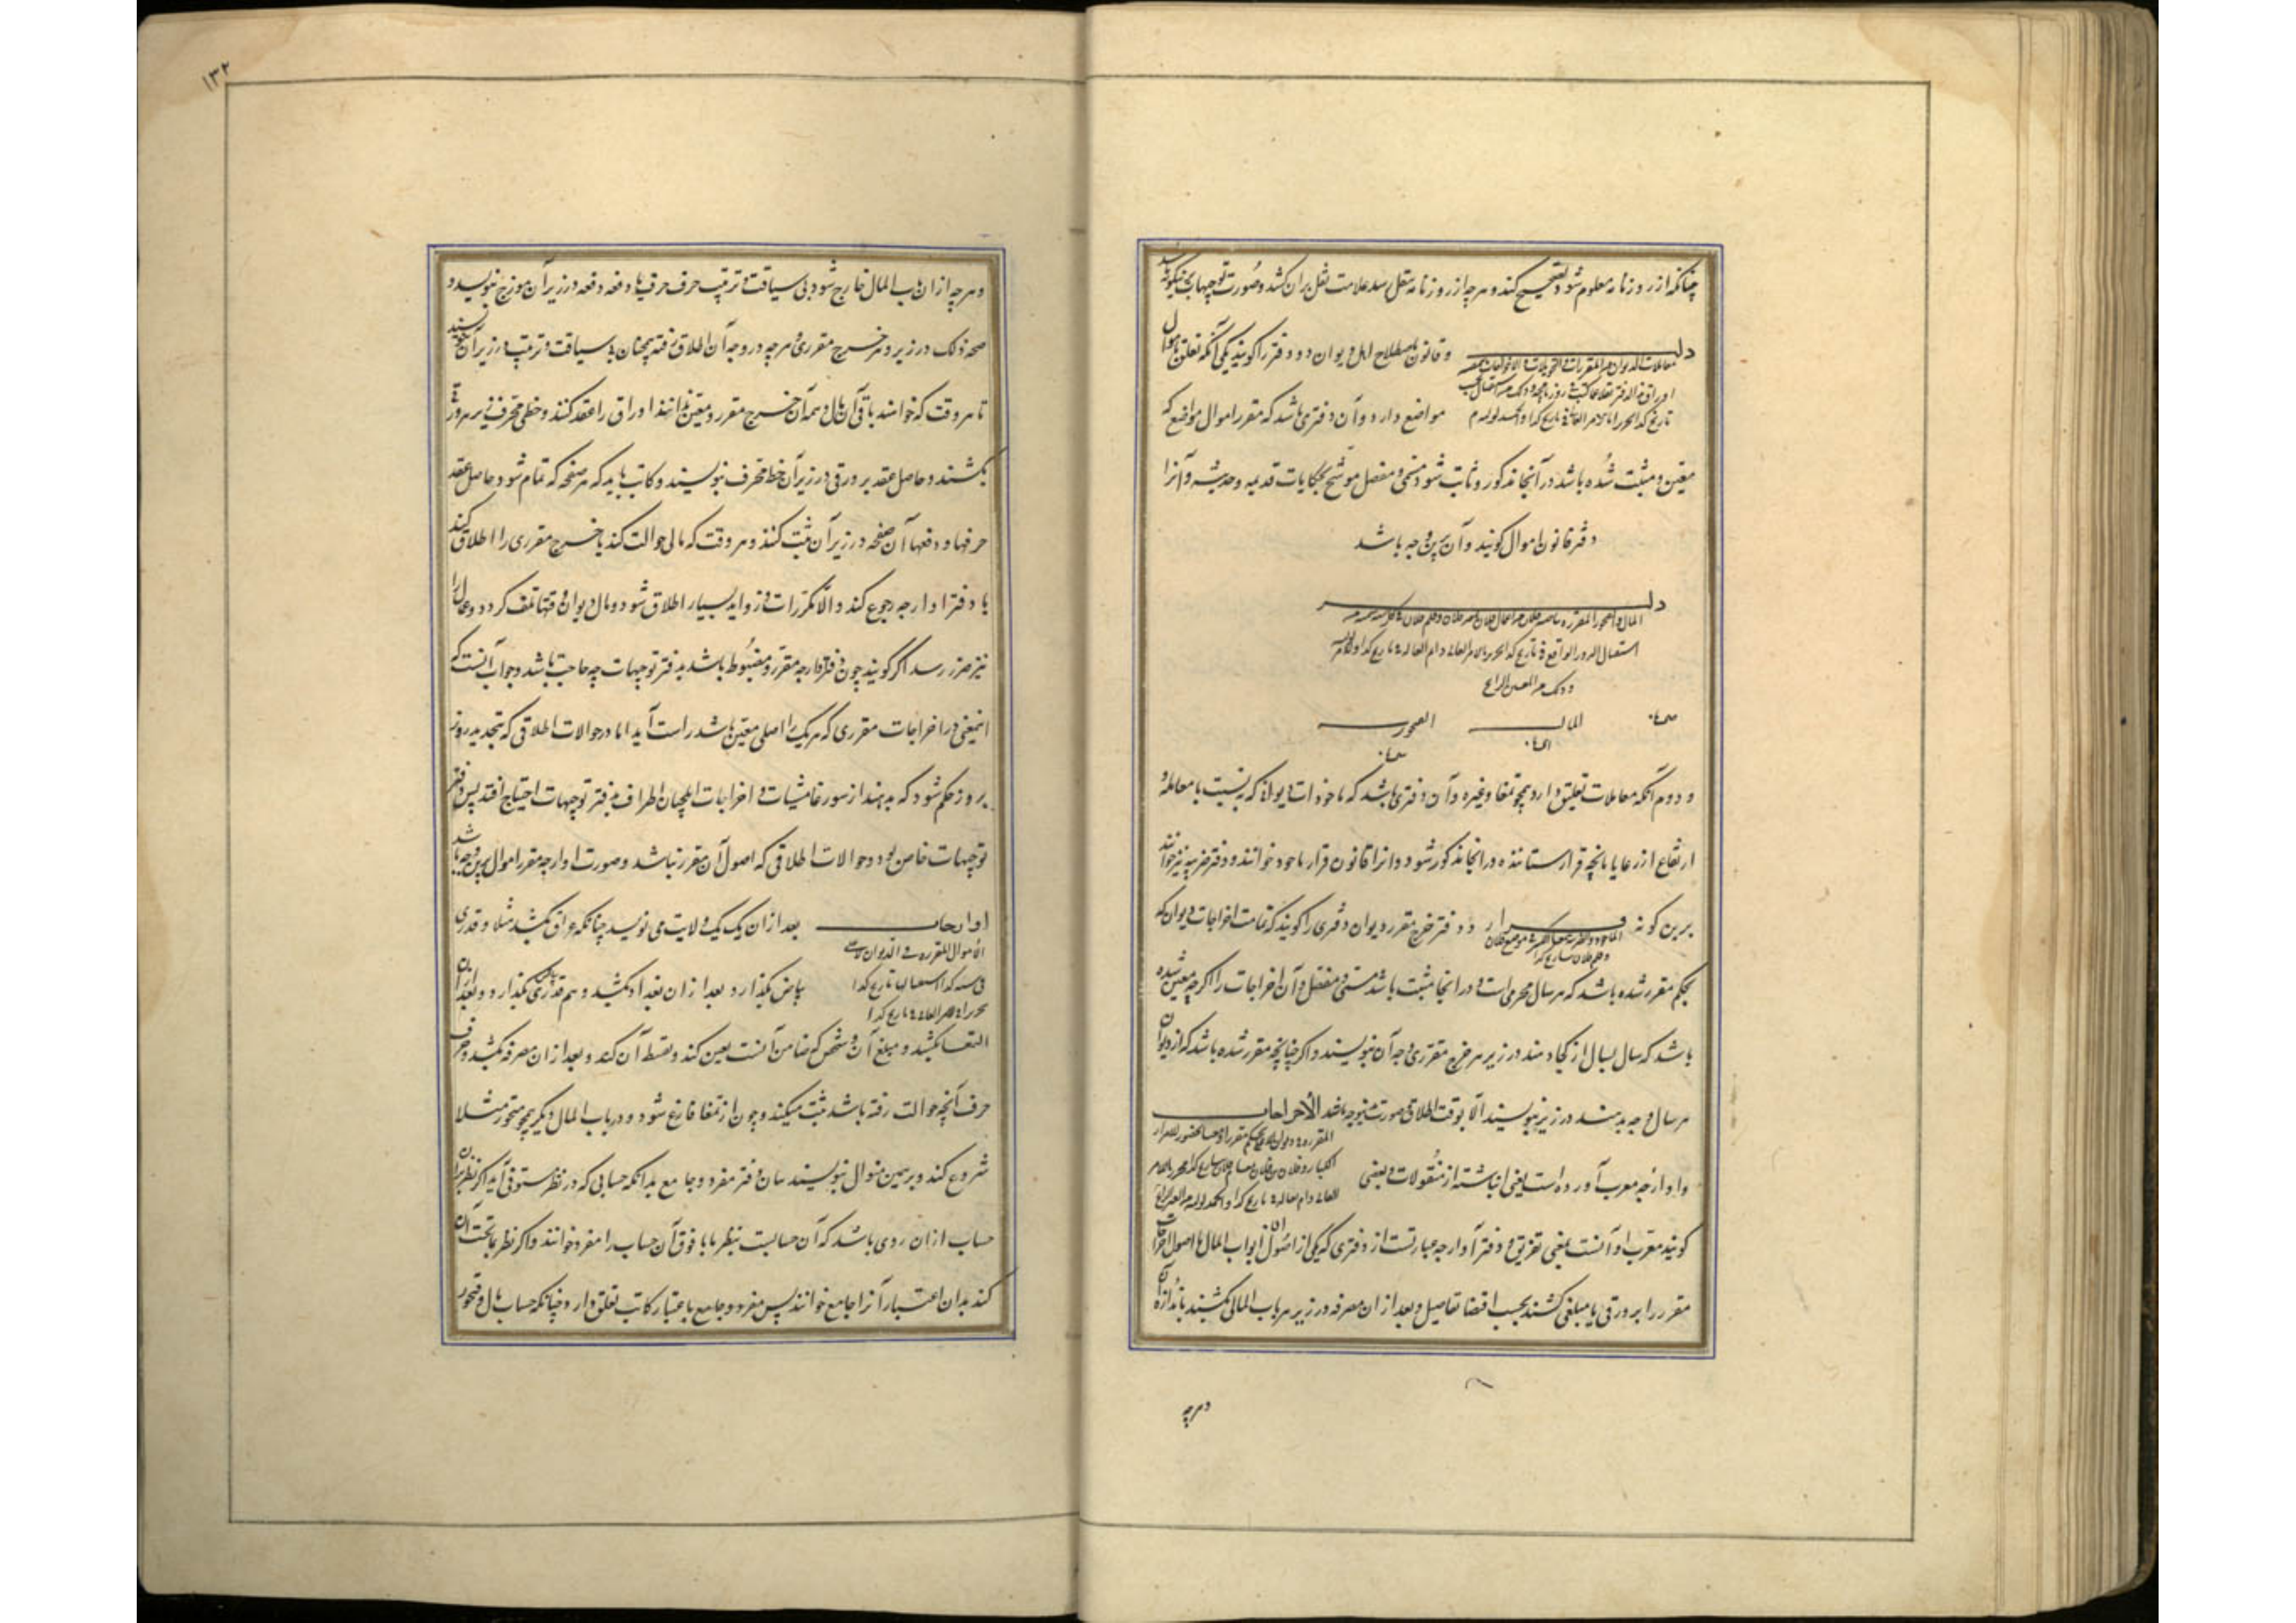 چنانکه از روزنامه معلوم شود تصحیح کند و هرچه از روزنامه نقل کند علامت نقل بران کشد و صورت توجیهات
و قانون باصطلاح اهل دیوان دو دفتر را گویند یکی آنکه تعلق باموال
مواضع دارد و آن دفتری باشد که مقرر اموال مواضع که
معین و مثبت شده باشد در آنجا مذکور و ثابت شود مسمی و مفصل موشح بحکایات قدیمه و حدیثه و آنرا
دفتر قانون اموال گویند و آن برین وجه باشد
المال
و دوم آنکه بمعاملات تعلق دارد همچو تمغا و غیره و آن دفتری باشد که ماخوذات دیوانی که به نسبت با معامله و
ارتفاع از رعایا بآنچه قرار ستانند در آنجا مذکور شود و آنرا قانون قرار ماخوذ خوانند و دفتر ضریبه نیز خوانند
برین گونه و دفتر خرج مقرر دیوان دفتری را گویند که تمامت اخراجات دیوان که
بحکم مقرر شده باشد که هر سال مجری است در آنجا مثبت باشد مسمی و مفصل و آن اخراجات را اگر وجه معین شده
باشد که سال بسال از کجا دهند در زیر هر خرج مقرری وجه آن بنویسند و اگر چنانچه مقرر شده باشد که از دیوان
هر سال وجه بدهند در زیر ننویسند الا بوقت اطلاق صورت الأخراجات
و اوارجه معرب آورده است یعنی انباشته از منقولات و بعضی
گویند معرب او آنست بمعنی تفریق و دفتر آوارجه عبارتست از دفتری که یکی از اصول ابواب المال یا اصول اخراجات
مقرر را بر ورقی یا مبلغی کشند بحسب اقتضا تفاصیل و بعد از ان مصرفه در زیر هر باب المالی بکشند باندازه آن
وهرچه
۱۳۲
و هرچه از ان باب المال خارج شود بی سیاقت و ترتیب حرف حرف یا دفعه دفعه در زیر آن موزج بنویسد و
صحه ذلک در زیر و هر خرج مقرری و هرچه در وجه آن اطلاق رفته همچنان بی سیاقت و ترتیب در زیر آن بنویسند
تا هر وقت که خواهند باقی آن مال و تتمه آن خرج مقرر و معین بدانند اوراق را عقد کنند و خطی محرف بر سر هر ورقی
بکشند و حاصل عقد هر ورقی در زیر آن خط محرف بنویسند و کاتب باید که هر صفحه که تمام شود حاصل عقد
حرفها و دفعهای آن صفحه در زیر آن ثبت کند و هر وقت که مالی حوالت کند یا خرج مقرری را اطلاق کند
با دفتر اوارجه رجوع کند و الا مکررات و زواید بسیار اطلاق شود و مال دیوان در وقتها تلف گردد و عمال را
نیز ضرر رسد اگر گویند چون دفتر اوارجه مقرر و مضبوط باشد بدفتر توجیهات چه حاجت باشد جواب آنست که
اینمعنی در اخراجات مقرری که هر یک را اصلی معین باشد راست آید اما در حوالات اطلاقی که بتجدید روز
بروز حکم شود که بدهند از سور غامیشیات و اخراجات ایلچیان اطراف بدفتر توجیهات احتیاج افتد پس دفتر
توجیهات خاص بود بحوالات اطلاقی که اصول آن مقرر نباشد و صورت اوارجه مقرر اموال برین وجه باشد
اوارجات بعد از ان یک یک ولایت می نویسد چنانکه عراق بکشد مثلا و قدری
الأموال المقررة فی الدیوان
بیاض بگذارد و بعد از ان بغداد بکشد و هم قدری بگذارد و بعد از ان
التمغا بکشد و مبلغ آن و شخص که ضامن آنست تعیین کند و تقسیط آن کند و بعد از ان مصرفه بکشد و حرف
حرف آنچه حوالت رفته باشد ثبت میکند و چون از تمغا فارغ شود در باب المال دیگر همچو قبچور مثلا
شروع کند و برین منوال بنویسند بیان دفتر مفرد و جامع بدانکه حسابی که در نظر مستوفی آید اگر نظر بران
حساب از ان روی باشد که آن حسابیست بنظر با ما فوق آن حساب را مفرد خوانند و اگر نظر بما تحت آن
کند بدان اعتبار آنرا جامع خوانند پس مفرد و جامع باعتبار کاتب تعلق دارد چنانکه حساب مال و قبچور